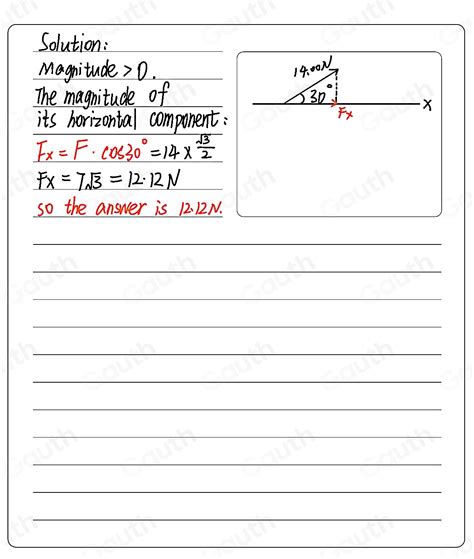 Solution:
Magnitude > 0.
The magnitude of
its horizontal component:
Fx = F · cos30° = 14 × √3/2
Fx = 7√3 = 12.12 N
so the answer is 12.12N.
14.00N
30°
x
Fx
Gauth